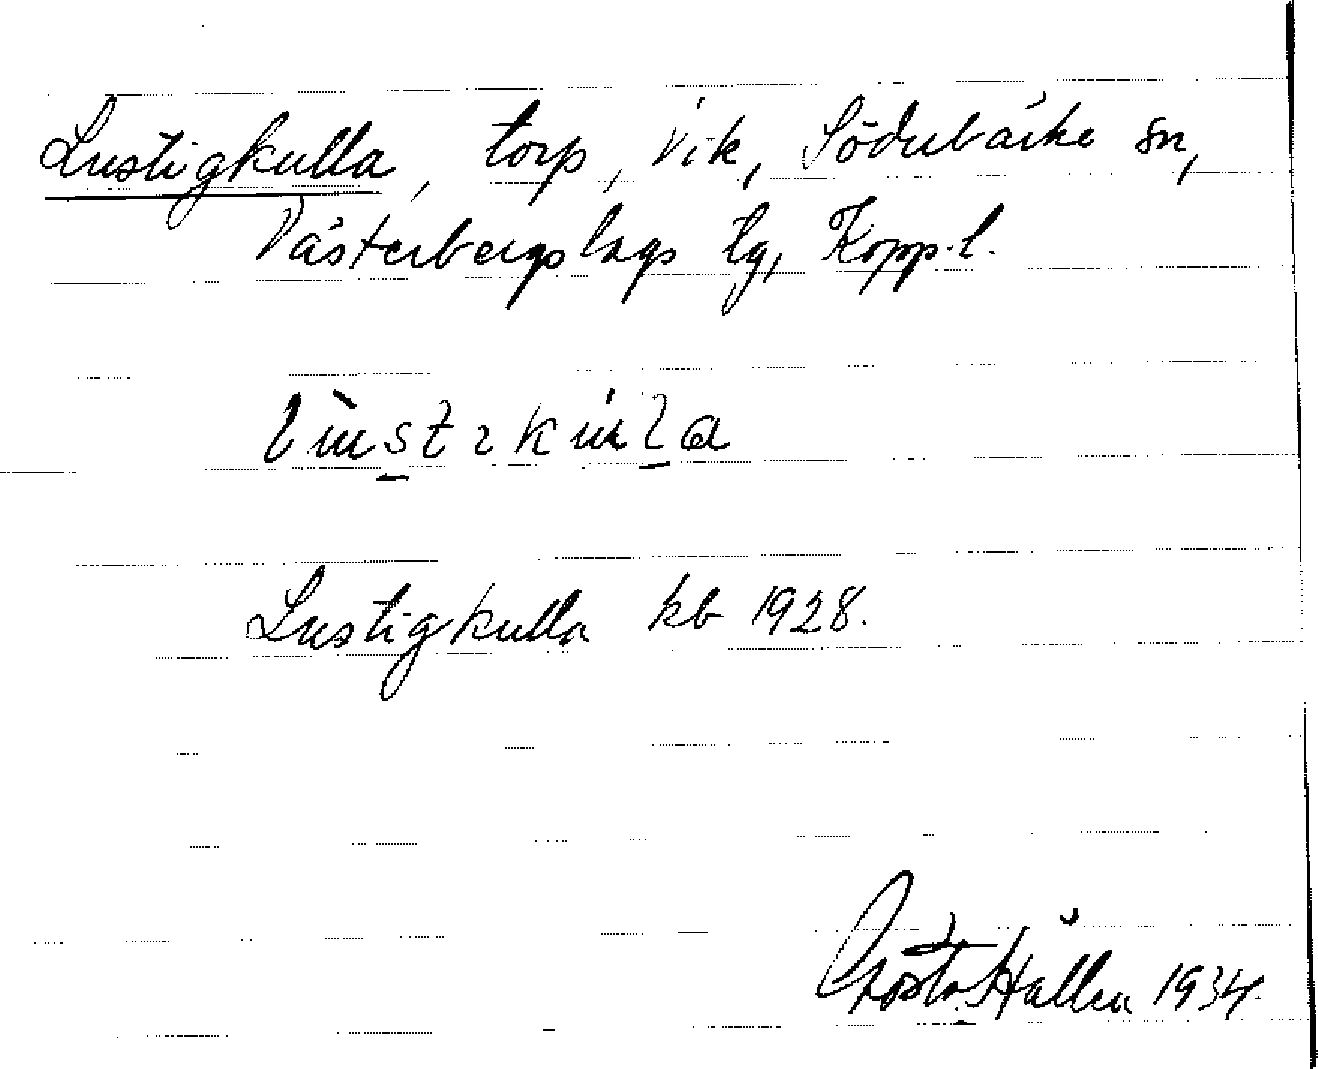 Lustigkulla, torp, Vik, Söderbärke sn,
Västerbergslags tg, Kopp. l.
Lustigkulla kb 1928.
Gösta Hallén 1934.